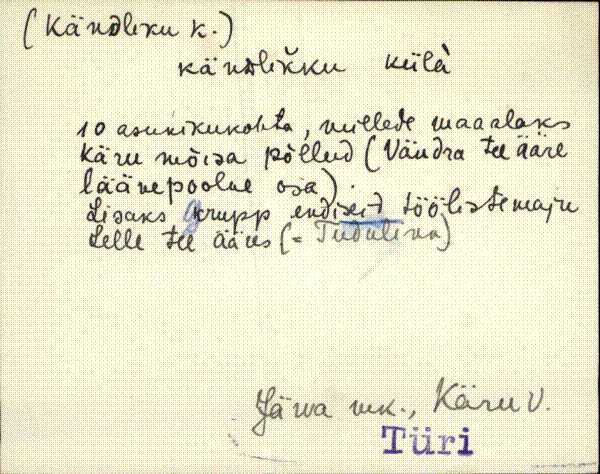 (Kändliku k.)
kändlikku külà
10 asunikukohta, millede maaalaks
Käru mõisa põllud (Vändra tee ääre
läänepoolne osa).
Lisaks grupp endiseid töölistemaju
Lelle tee ääres (= Tiidulina)
Järva mk., Käru v.
Türi